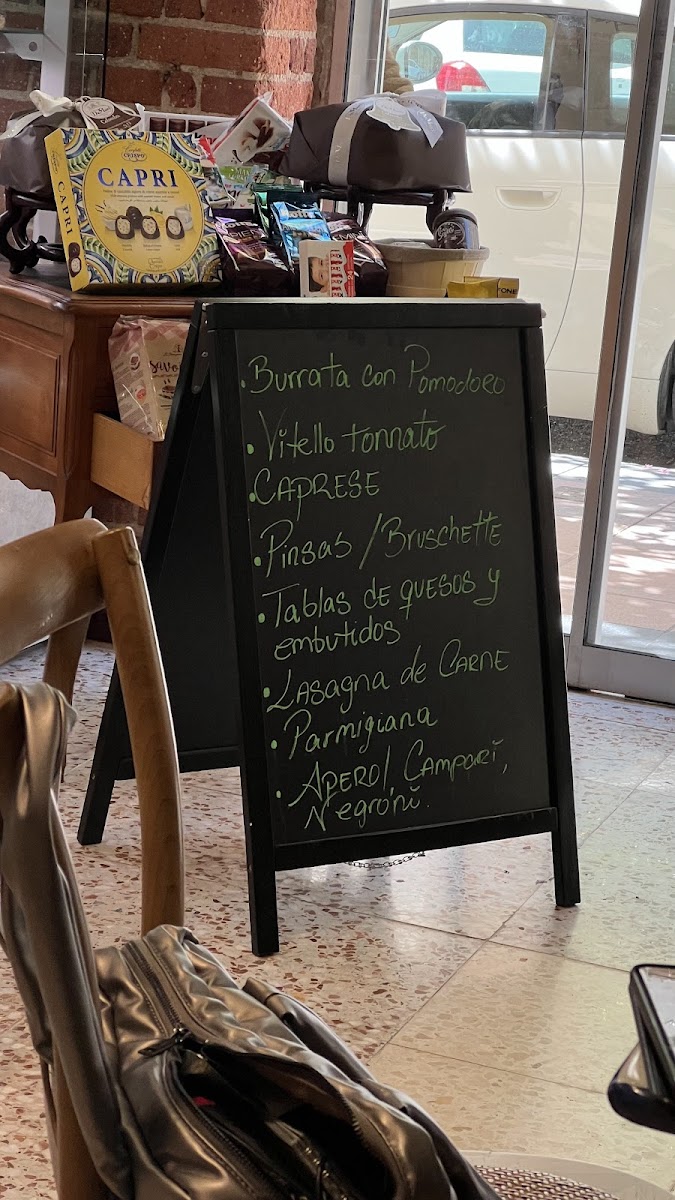 CRISPO
CAPRI
CAPRI
• Burrata con Pomodoro
• Vitello tonnato
• CAPRESE
• Pinsas / Bruschette
• Tablas de quesos y
embutidos
• Lasagna de CARNE
• Parmigiana
• APEROL, Campari,
Negroni.